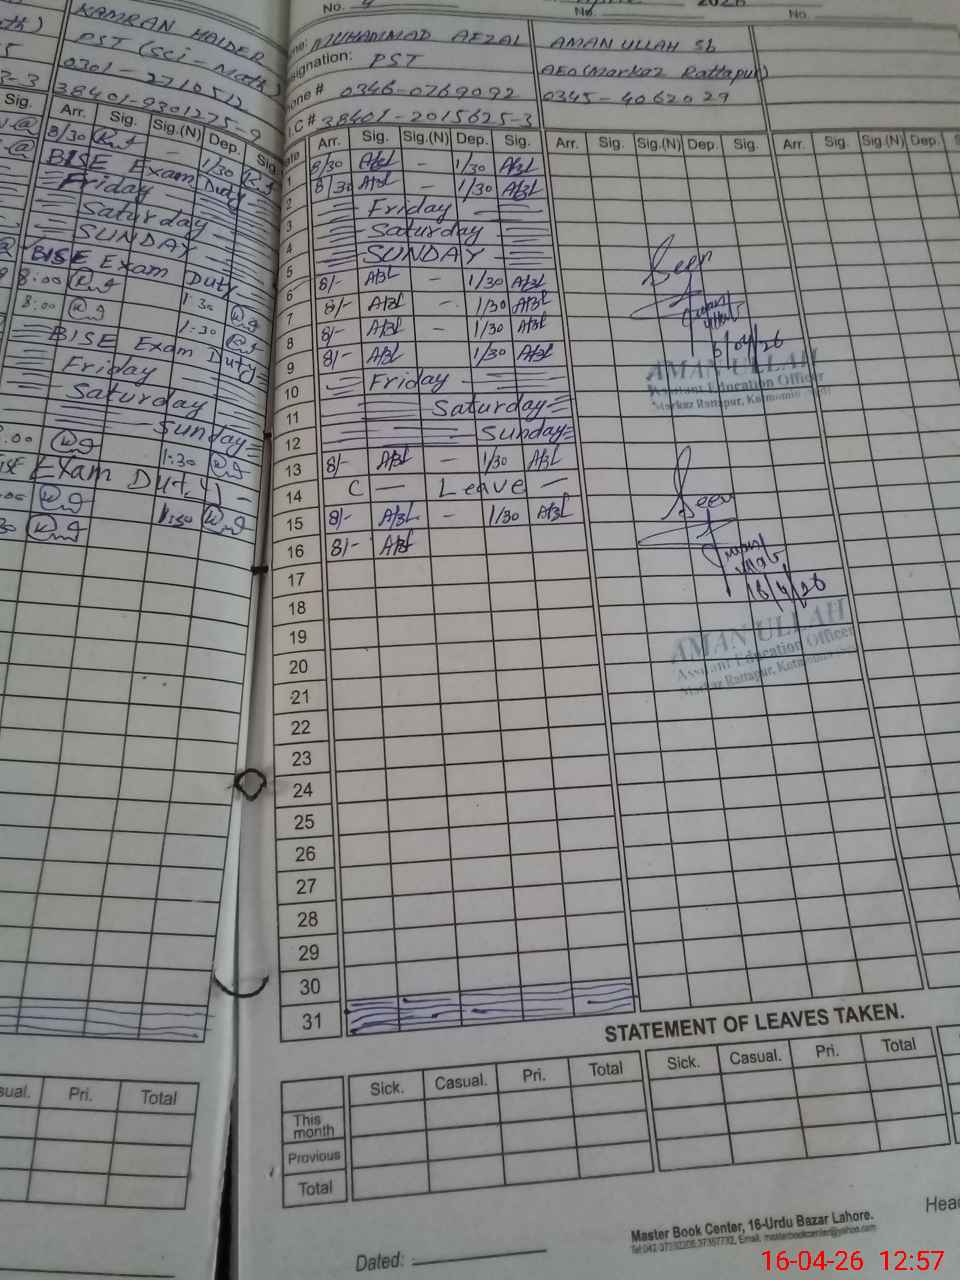 No. 4
2026
No.
No.
KAMRAN HAIDER
PST (Sci-Math)
0301-2710512
38401-9301275-9
Arr. Sig. Sig.(N) Dep. Sig.
8/30 - 1/30
BISE Exam Duty
Friday
Saturday
SUNDAY
BISE Exam Duty
8:00 1:30
8:00 1:30
BISE Exam Duty
Friday
Saturday
Sunday
:00 1:30
Exam Duty
1:30
MUHAMMAD AFZAL
signation: PST
one # 0346-0769092
I.C # 38401-2015625-3
AMAN ULLAH Sb
AEO (Markaz Rattapur)
0345-4062029
Arr. Sig. Sig.(N) Dep. Sig. Arr. Sig. Sig.(N) Dep. Sig. Arr. Sig. Sig.(N) Dep.
1 8/30 Afzl - 1/30 Afzl
2 8/30 Afzl - 1/30 Afzl
3 Friday
4 Saturday
5 SUNDAY
6 8/- Afzl - 1/30 Afzl
7 8/- Afzl - 1/30 Afzl
8 8/- Afzl - 1/30 Afzl
9 8/- Afzl - 1/30 Afzl
10 Friday
11 Saturday
12 Sunday
13 8/- Afzl - 1/30 Afzl
14 C - Leave -
15 8/- Afzl - 1/30 Afzl
16 8/- Afzl
17
18
19
20
21
22
23
24
25
26
27
28
29
30
31
Seen
6/04/26
AMAN ULLAH
Assistant Education Officer
Markaz Rattapur, Kotmomin
Seen
16/4/26
AMAN ULLAH
Assistant Education Officer
Markaz Rattapur, Kotmomin
STATEMENT OF LEAVES TAKEN.
sual. Pri. Total
Sick. Casual. Pri. Total Sick. Casual. Pri. Total
This month
Previous
Total
Dated:
Head
Master Book Center, 16-Urdu Bazar Lahore.
16-04-26 12:57